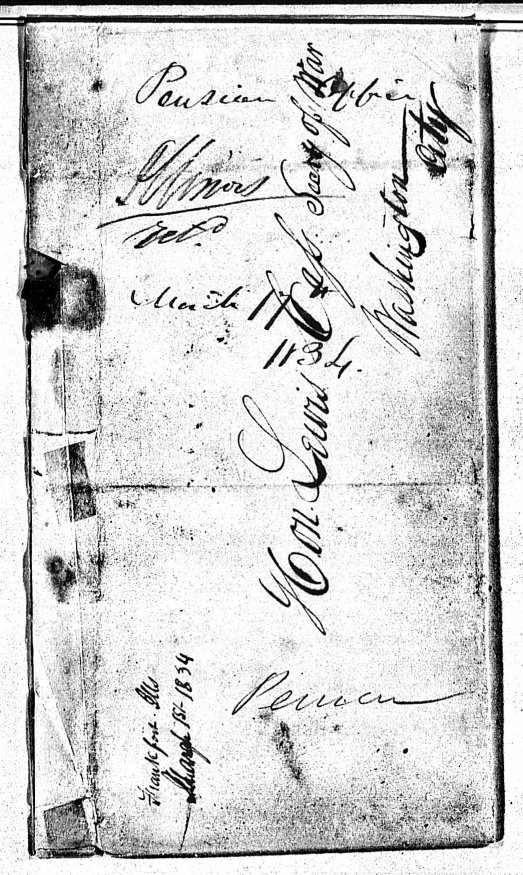 Pension Office
Illinois
recd
March 17
1834.
Hon. Lewis Cass. Secy of War
Washington
City
Frankfort Ills
March 1st 1834
Pension